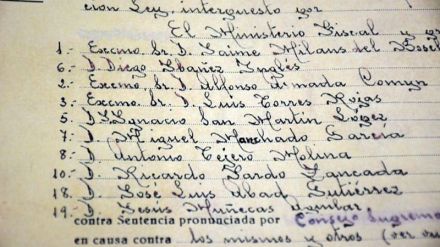 cion Ley, interpuesto por
El Ministerio Fiscal y por
1.- Excmo Sr. D. Jaime Milans del Bosch
6.- D. Diego Ibañez Inglés
2.- Excmo Sr. D. Alfonso Armada Comyn
3.- Excmo. Sr. D. Luis Torres Rojas
5.- D. Ignacio San Martín López
7.- D. Miguel Manchado Garcia
8.- D. Antonio Tejero Molina
10.- D. Ricardo Pardo Zancada
18.- D. José Luis Abad Gutiérrez
19.- D. Jesus Muñecas Aguilar
contra Sentencia pronunciada por Consejo Supremo
en causa contra los mismos y otros (ver